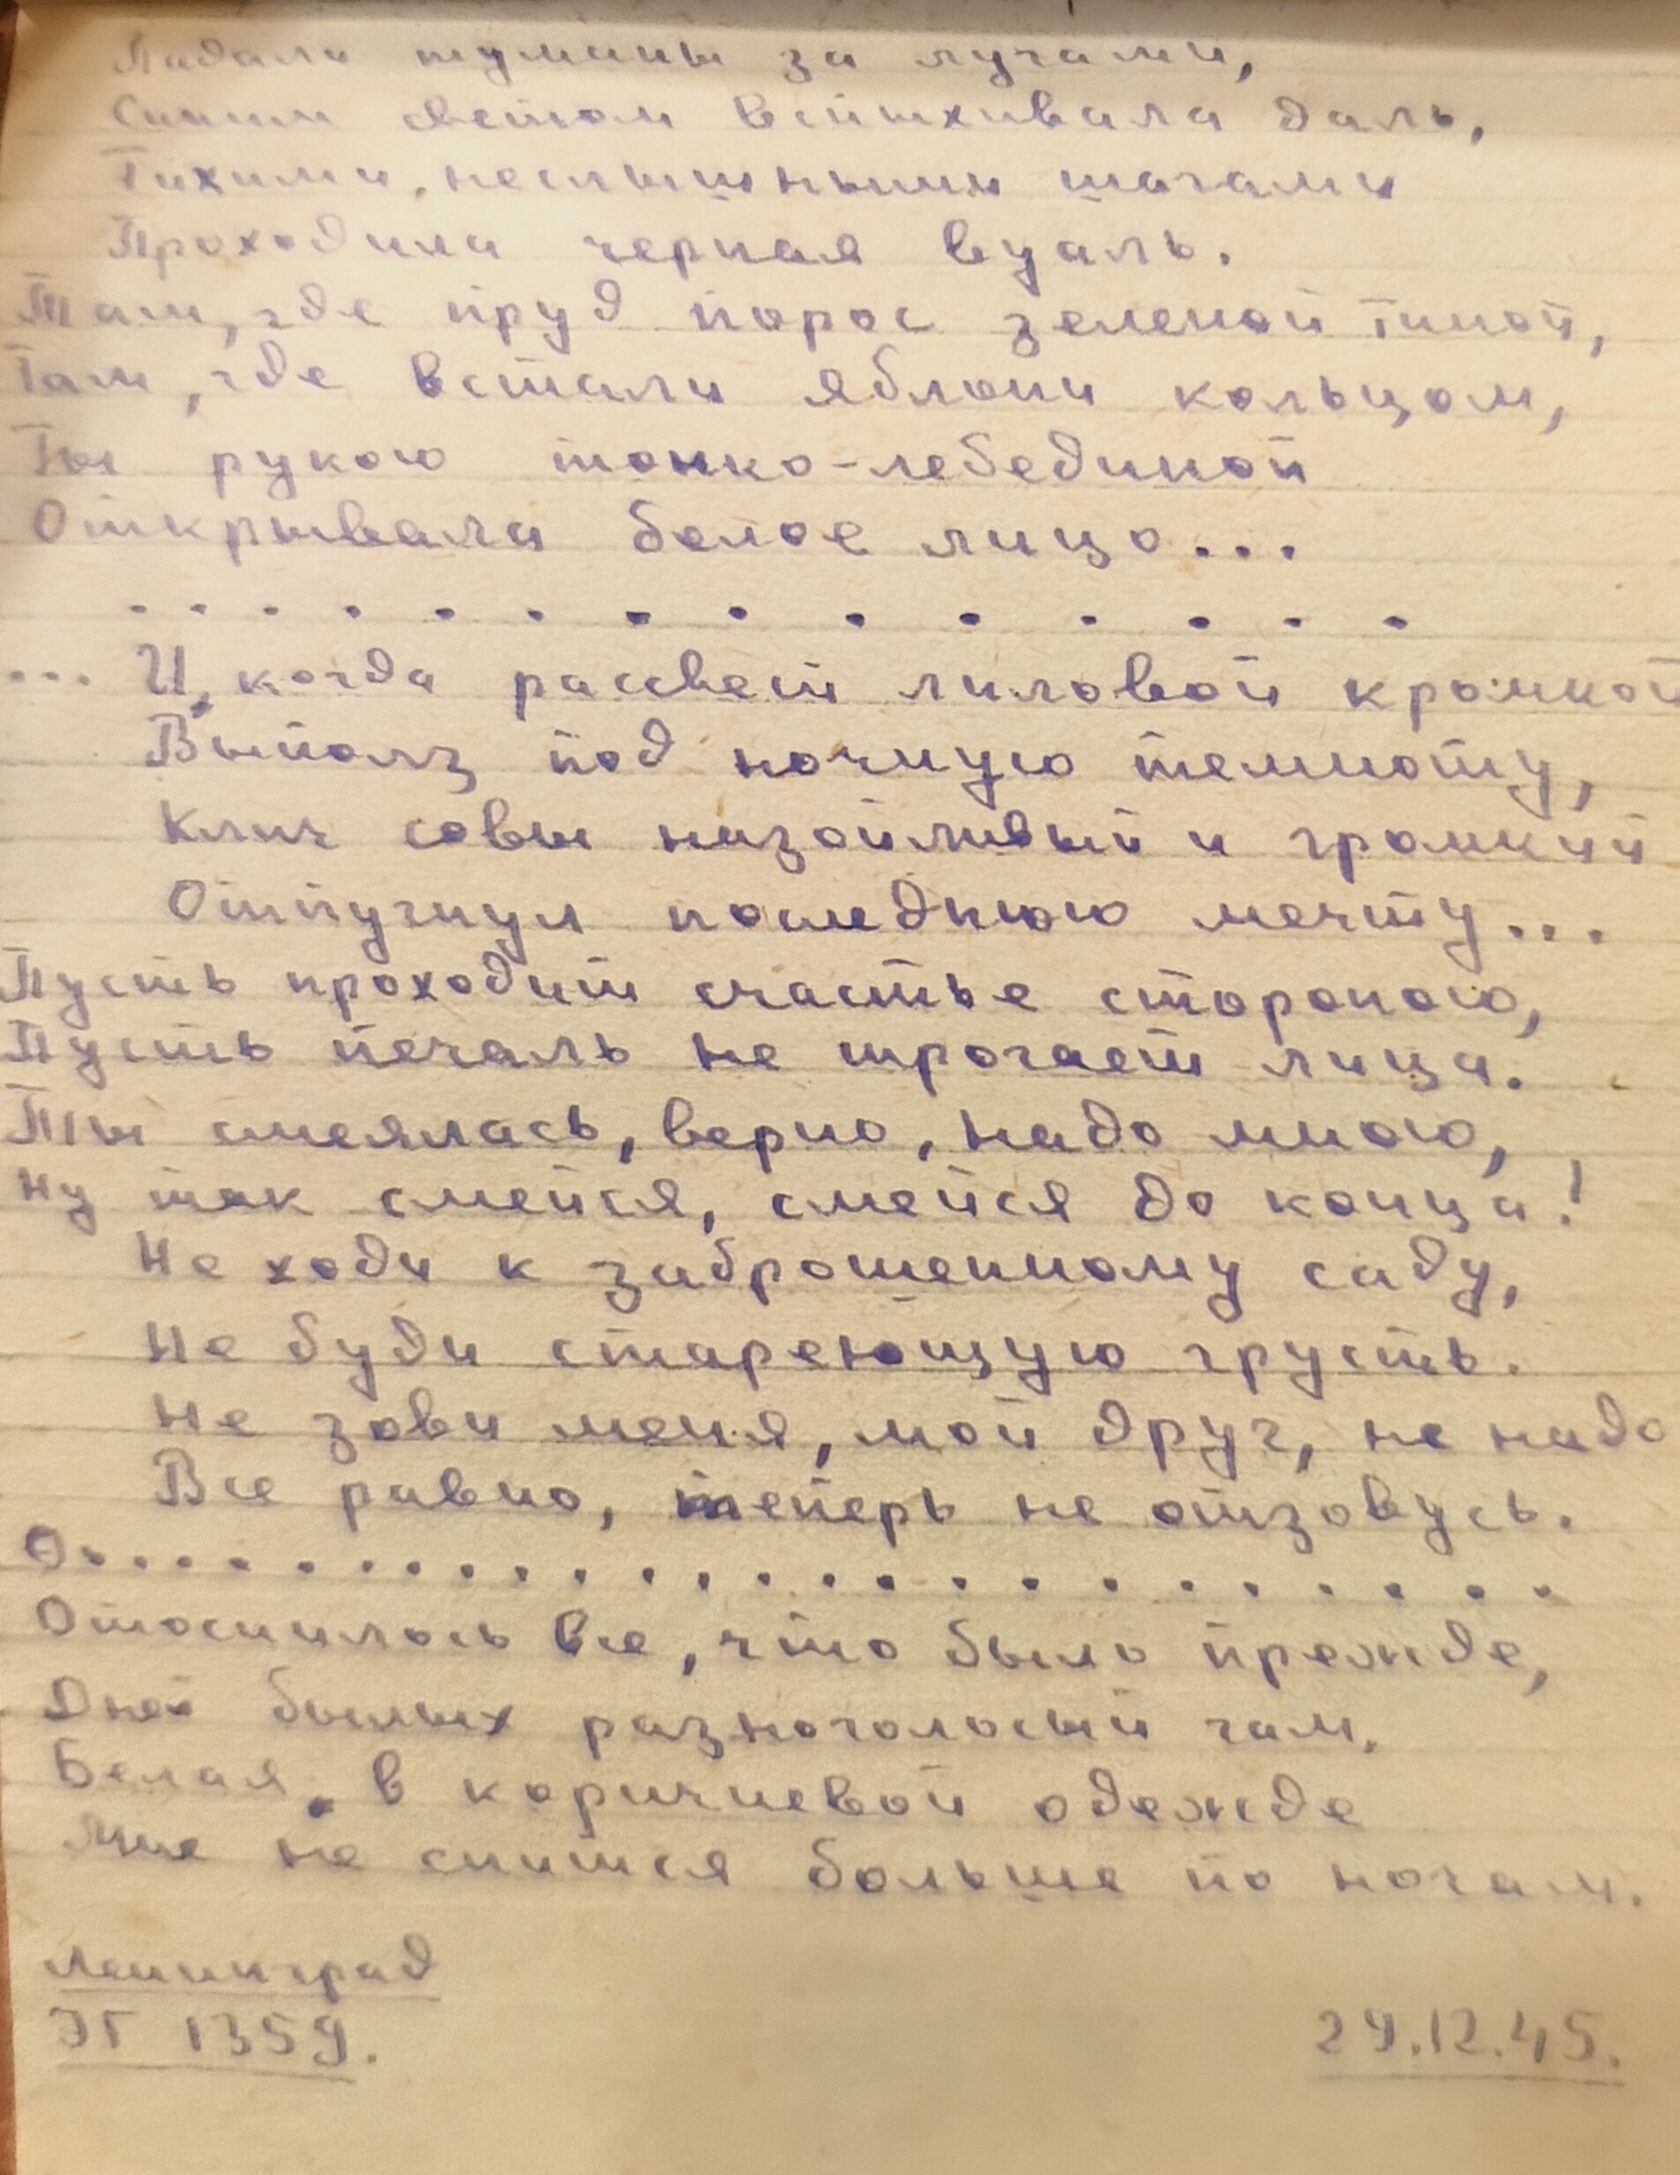 Падали туманы за лугами,
Синим светом вспыхивала даль,
Тихими, неслышными шагами
Проходила черная вуаль.
Там, где пруд порос зеленой тиной,
Там, где встали яблони кольцом,
Ты рукою тонко-лебединой
Открывала белое лицо...
. . . . . . . . . . . . . .
... И, когда рассвет лиловой кромкой
Выполз под ночную темноту,
Клич совы назойливый и громкий
Отпугнул последнюю мечту...
Пусть проходит счастье стороною,
Пусть печаль не трогает лица.
Ты смеялась, верно, надо мною,
Ну так смейся, смейся до конца!
Не ходи к заброшенному саду,
Не буди стареющую грусть.
Не зови меня, мой друг, не надо
Все равно, теперь не отзовусь.
О. . . . . . . . . . . . . . . . . . . . . .
Отоснилось все, что было прежде,
Дней былых разноголосый гам.
Белая, в коричневой одежде
Мне не снится больше по ночам.
Ленинград
ЭГ 1359.
24.12.45.